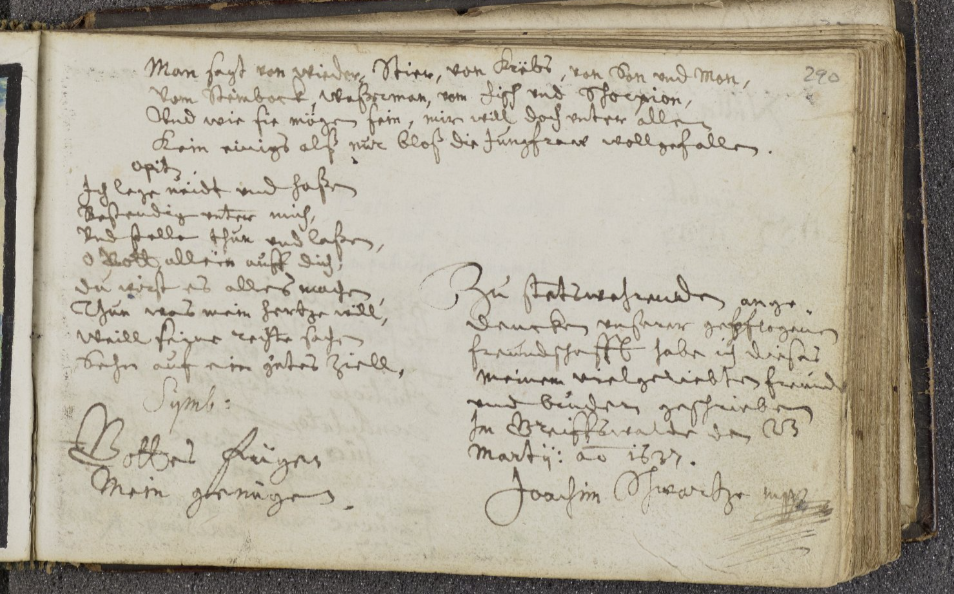 290
Man sagt von wieder, Stier, von Krebs, von Son vnd Mon,
Vom Steinbock, waßerman, vom Fisch vnd Schorpion,
Vnd wie sie mögen sein, mir will doch vnter allen
Kein einigs alß nur bloß die Jungfraw wollgefallen.
opitz.
Ich lege neidt vnd haßen
Bestendig vnter mich,
Vnd stelle thun vnd laßen,
O Gott allein auff dich,
Du wirst es alles machen,
Thun was mein hertze will,
Weill seine rechte sachen
Sehn auf ein gutes Ziell,
Symb:
Gottes fügen
Mein genügen.
Zu stetswehrenden ange
dencken vnßerer gepflogenen
freundschafft habe ich dieses
meinem vielgeliebten freund
vnd brudern geschrieben
In Greiffswalde den 23
Martij: ao 1637.
Joachim Schwartze mpp